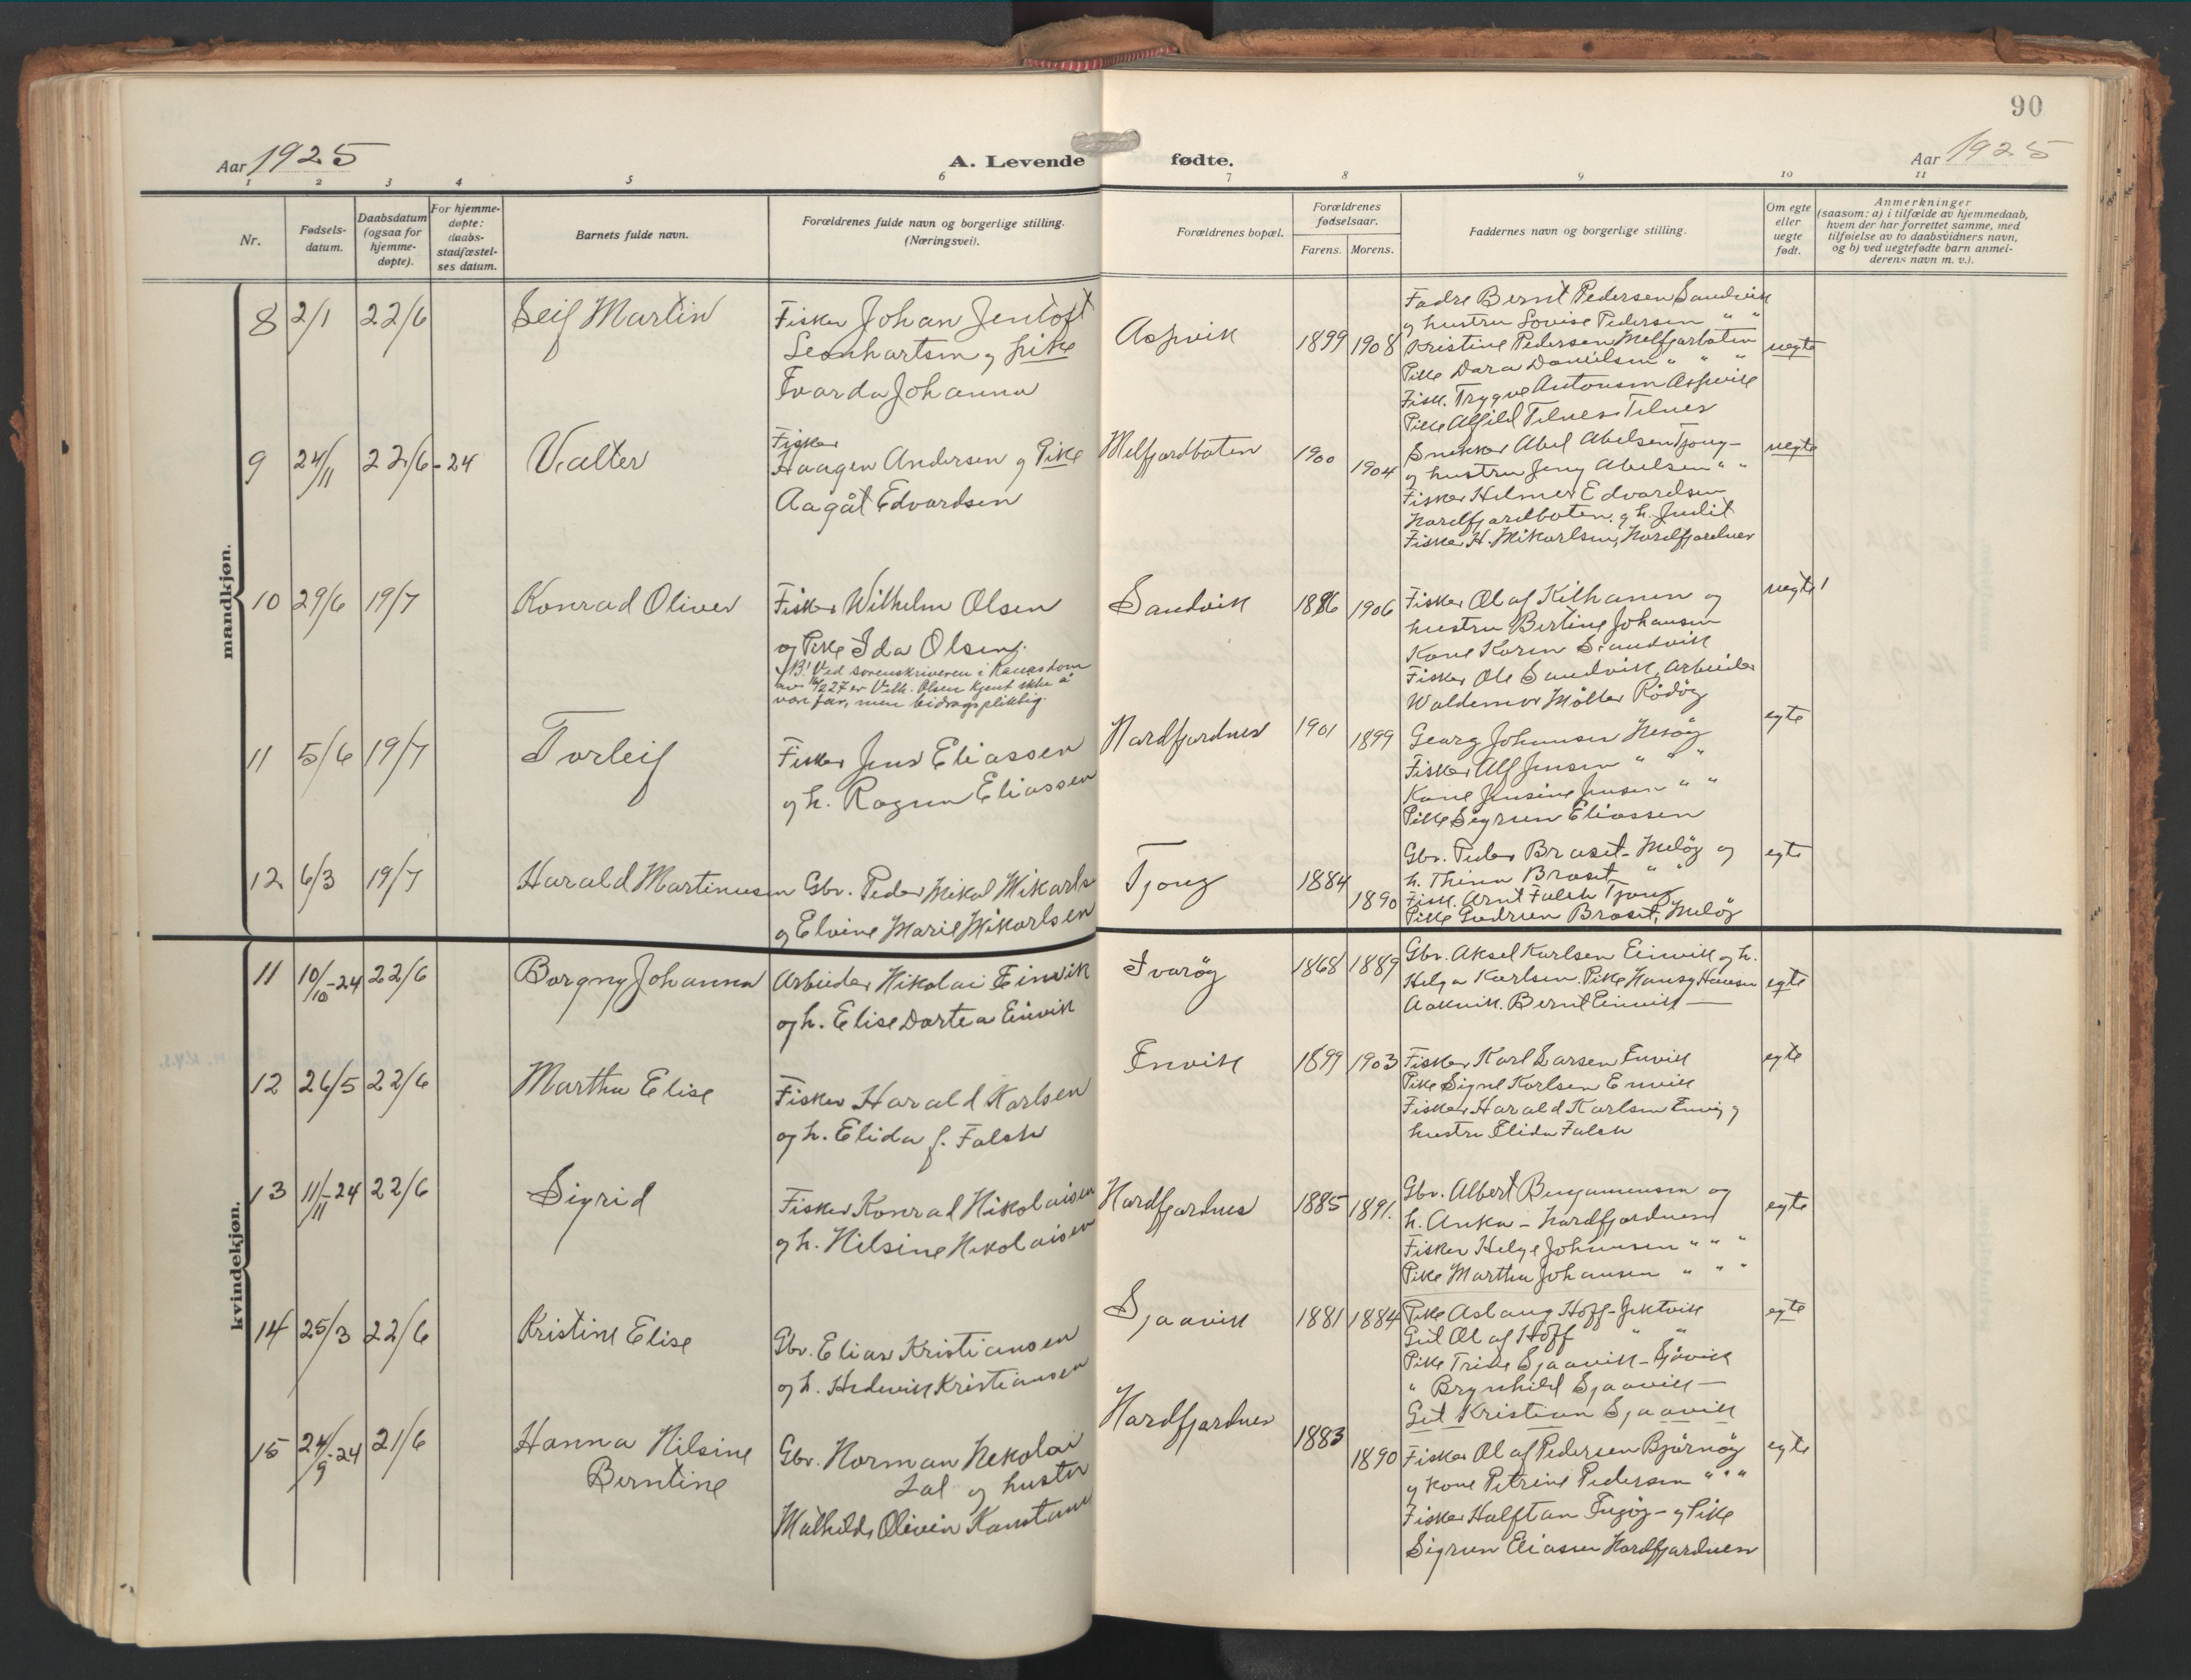 90
Aar 1925
A. Levende fødte.
Aar 1925
1 2 3 4 5 6 7 8 9 10 11
Nr.
Fødsels-
datum.
Daabsdatum
(ogsaa for
hjemme-
døpte).
For hjemme-
døpte:
daabs-
stadfæstel-
ses datum.
Barnets fulde navn.
Forældrenes fulde navn og borgerlige stilling.
(Næringsvei).
Forældrenes bopæl.
Forældrenes
fødselsaar.
Farens. Morens.
Faddernes navn og borgerlige stilling.
Om egte
eller
uegte
født.
Anmerkninger
(saasom: a) i tilfælde av hjemmedaab,
hvem der har forrettet samme, med
tilføielse av to daabsvidners navn,
og b) ved uegtefødte barn anmel-
derens navn m. v.).
mandkjøn.
8 2/1 22/6 Leif Martin
Fisker Johan Jentoft
Leonhartsen og pike
Tvarda Johanna
Aspvik 1899 1908
Fadre Bernt Pedersen Sandvik
og hustru Lovise Pedersen " "
Kristine Pedersen Melfjarboten
Pike Dara Danielsen " " "
Fisk. Trygve Antonsen Aspvik
Pike Alfild Telnes Telnes
uegte
9 24/11 22/6-24 Valter
Fisker
Haagen Andersen og Pike
Aagåt Edvardsen
Melfjardboten 1900 1904
Snekker Abel Abelsen Tjong-
og hustru Jeny Abelsen " "
Fisker Helmer Edvardsen
Nordfjardboten. og h. Judit
Fisker H. Mikarlsen, Nordfjordnes
uegte
10 29/6 19/7 Konrad Oliver
Fisker Wilhelm Olsen
og Pike Ida Olsen.
NB! Ved sorenskriveren i Ranas dom
av 16/2 27 er Vilh. Olsen kjent ikke å
være far, men bidragspliktig.
Sandvik 1886 1906
Fisker Olaf Kilhamn og
hustru Birtine Johansen
Kone Karen Sandvik
Fisker Ole Sandvik, Arbeider
Waldemar Möller Rödöy
uegte!
11 5/6 19/7 Torleif
Fisker Jens Eliassen
og h. Ragna Eliassen
Nordfjordnes 1901 1899
Georg Johansen Nesöy
Fisker Alf Jensen " " "
Kone Jensine Jensen " "
Pike Sigrun Eliassen
egte
12 6/3 19/7 Harald Martinusen
Gbr. Peder Mikal Mikarls
og Elvine Marie Mikarlsen
Tjong 1884 1890
Gbr. Peder Braset- Melöy og
h. Thina Braset " "
Fisk. Arnt Falch Tjong
Pike Gudrun Braset, Melöy
egte
kvindekjøn.
11 10/10-24 22/6 Borgny Johanna
Arbeider Nikolai Einvik
og h. Elise Dortea Einvik
Tvaröy 1868 1889
Gbr. Aksel Karlsen Einvik og h.
Helga Karlsen. Pike Hansy Hansen
Aakvik. Bernt Einvik —
egte
12 26/5 22/6 Martha Elise
Fisker Harald Karlsen
og h. Elida f. Falch
Envik 1899 1903
Fisker Karl Larsen Envik
Pike Signe Karlsen Envik
Fisker Harald Karlsen Envig og
hustru Elida Falch
egte
13 11/11-24 22/6 Sigrid
Fisker Konrad Nikolaisen
og h. Nilsine Nikolaisen
Nordfjordnes 1885 1891.
Gbr. Albert Benjaminsen og
h. Anka - Nordfjordnes
Fisker Helge Johansen " " "
Pike Martha Johansen " " "
egte
14 25/3 22/6 Kristine Elise
Gbr. Elias Kristiansen
og h. Hedevik Kristiansen
Sjaavik 1881 1884
Pike Aslaug Hoff- Jektvik
Gut Olaf Hoff " "
Pike Trine Sjaavik - Sjövik
" Brynhild Sjaavik —
Gut Kristian Sjaavik
egte
15 24/9-24 21/6 Hanna Nilsine
Berntine
Gbr. Norman Nekolai
Zal og hustr
Mathilde Olivin Konstanse
Nordfjordnes 1883 1890
Fisker Olaf Pedersen Björnöy
og kone Petrine Pedersen " " "
Fisker Halftan - og Pike
Sigrun Eliassen Nordfjordnes
egte